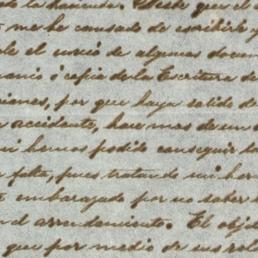 do la hacienda. Desde que el
me he cansado de escribirle y
le el envió de algunos docum
manio ó copia de la Escritura de
ciones, por que haya salido de
accidente, hace mas de un
ni hemos podido conseguir
falta, pues tratando mi her
embarazado por no saber
el arrendamiento. El obje
que por medio de sus rela